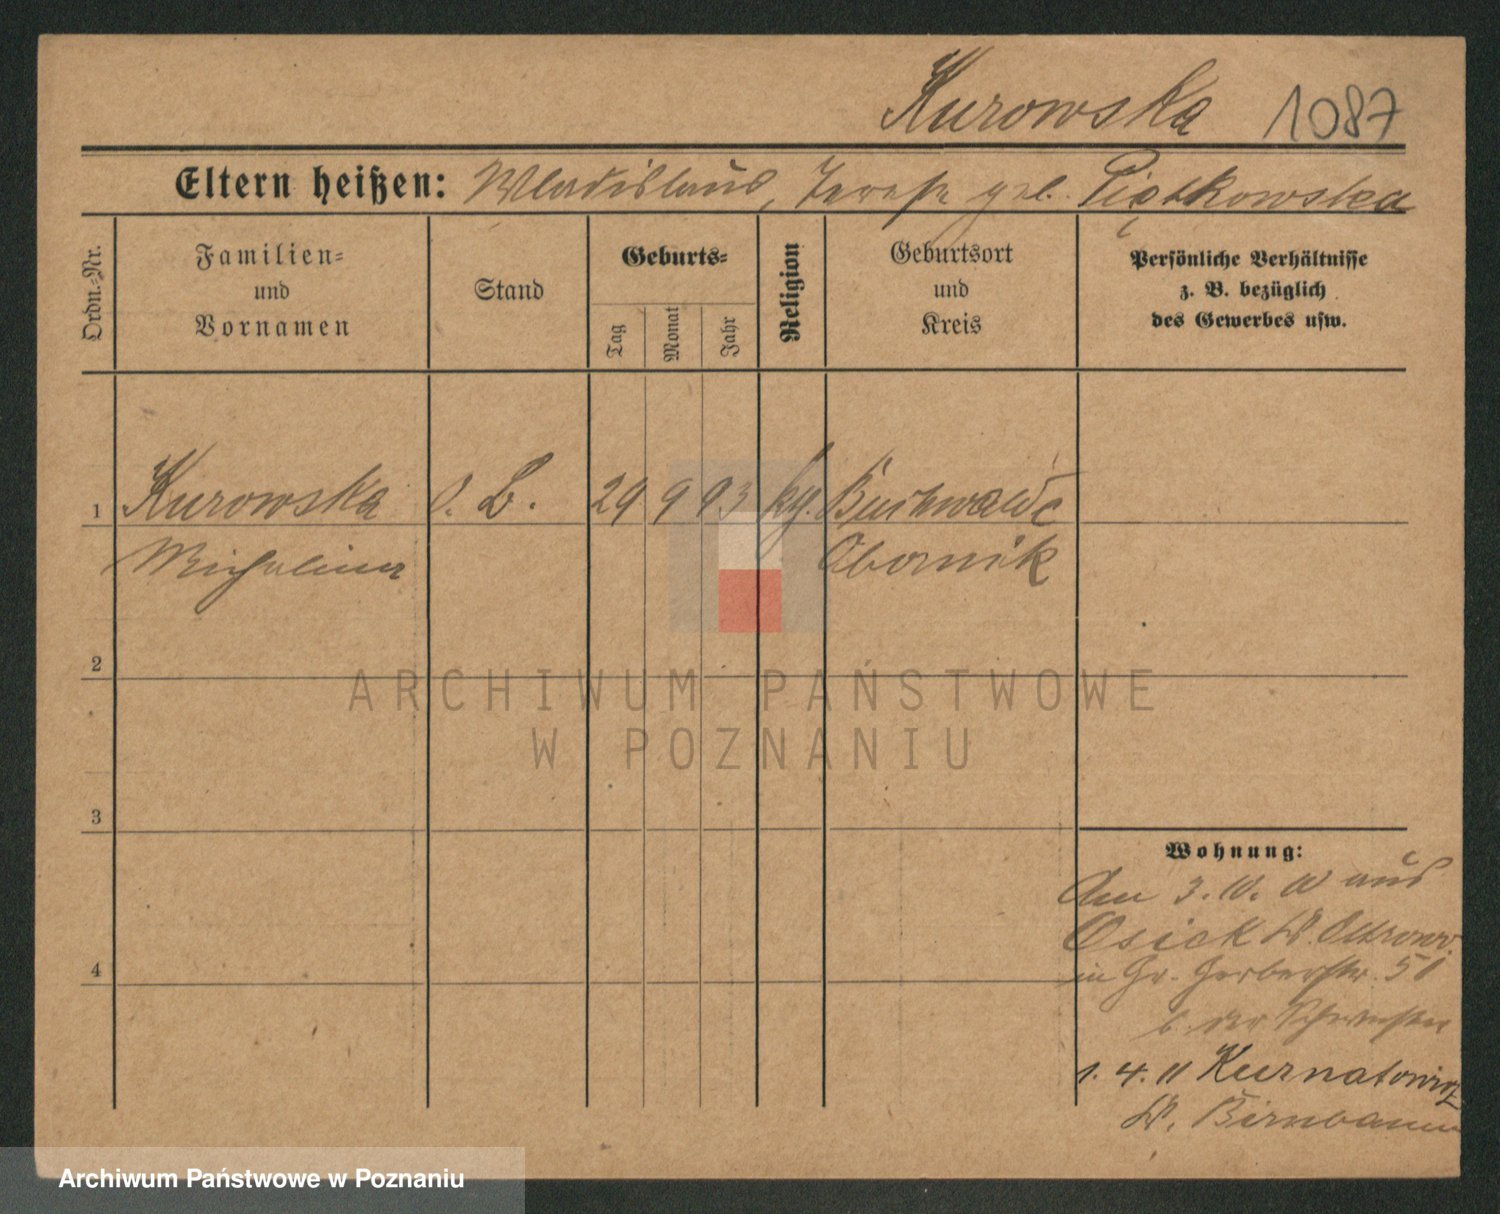 Kurowska 1087
Eltern heißen: Wladislaus, Terese geb. Piątkowska
Ordn.-Nr.
Familien-
und
Vornamen
Stand
Geburts-
Tag
Monat
Jahr
Religion
Geburtsort
und
Kreis
Persönliche Verhältnisse
z. B. bezüglich
des Gewerbes usw.
1 Kurowska o. B. 29 9 93 kg. Buchwalde
Michalina Obornik
2
ARCHIWUM PAŃSTWOWE
W POZNANIU
3
Wohnung:
Am 3. 10. 10 aus
Osiek Kr.
in Gr. Gerberstr. 51
b. der Schwester
4
1. 4. 11 Kurnatowitz
Kr. Birnbaum
Archiwum Państwowe w Poznaniu